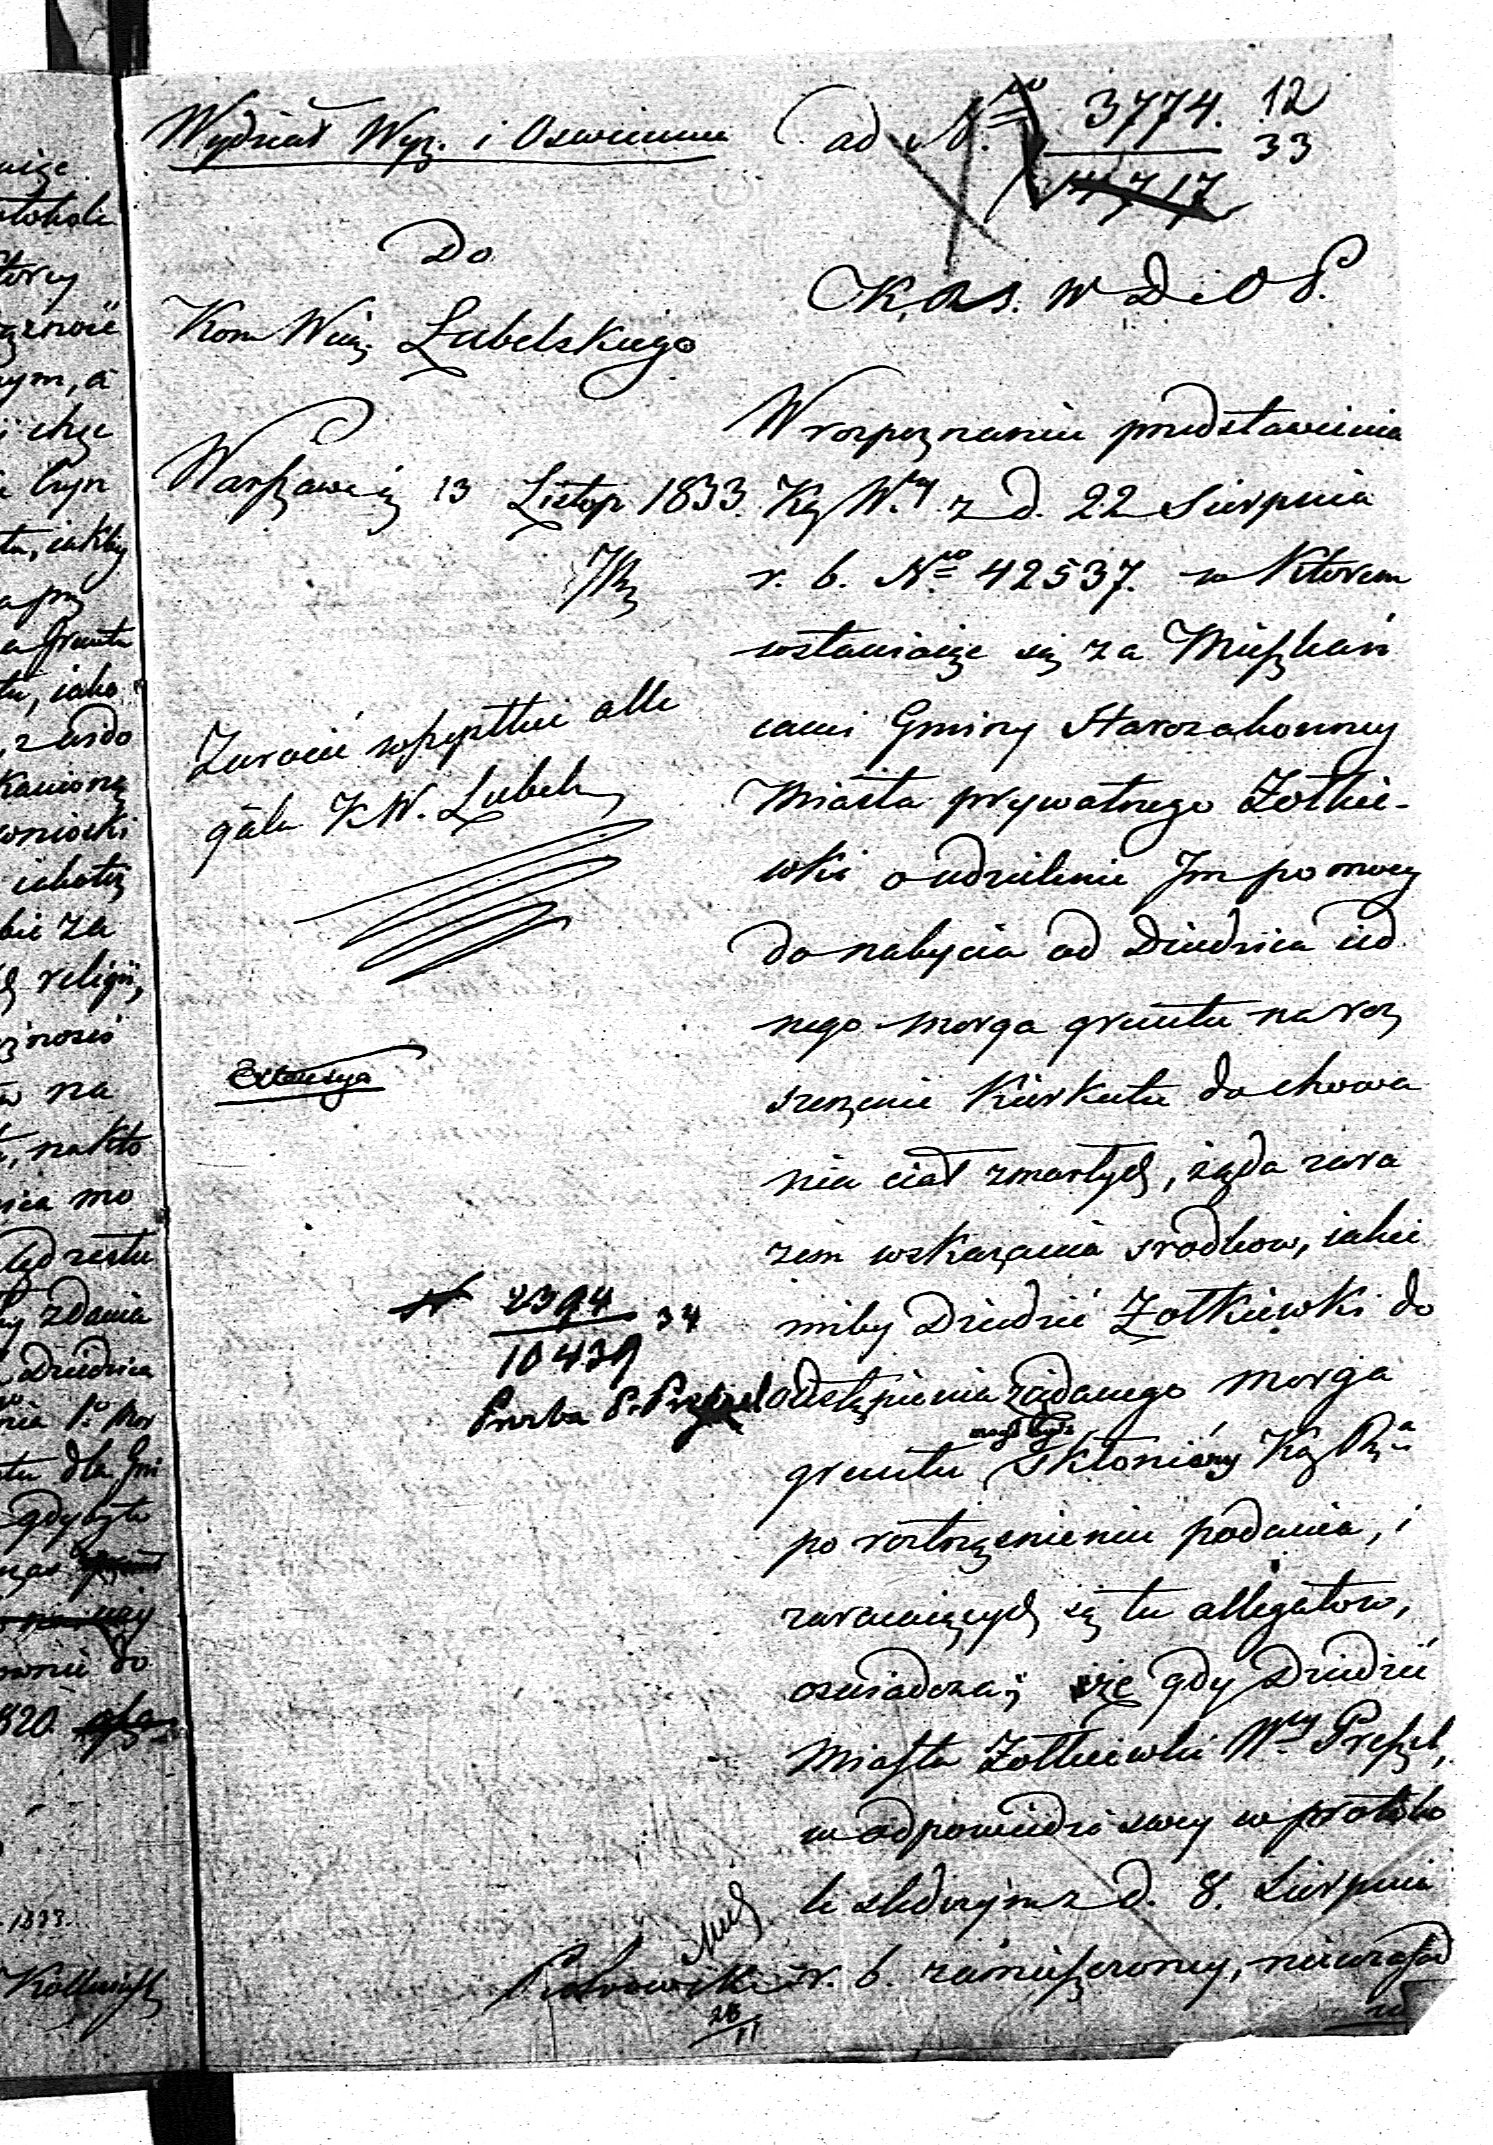 Wydział Wyz. i Oswiecenia
ad No 3774. 12
33
14717
Do
Kom Woie. Lubelskiego
Warszawie 13 Listop 1833.
Zwrocić wszystkie alle
gata K W. Lubels
Extensya
N 2394 34
10439
Prozba P. Preszel
Piotrowski
28/11
K. R. S. W. D. i O P.
W rozpoznaniu przedstawienia
Kg W. z d. 22 Sierpnia
r. b. No 42537. w ktorem
wstawiaiąc się za Mieszkań
cami Gminy Starozakonney
Miasta prywatnego Żołkie-
wki o udzielenie Im pomocy
do nabycia od Dziedzica ied
nego morga gruntu na roz
szerzenie Kirkutu do chowa
nia ciał zmarłych, żąda zara
zem wskazania srodkow, iakie
miby Dziedzic Żołkiewki do
odstąpienia żądanego morga
gruntu mogł bydź skłoniony K. Rz.
po roztrząśnieniu podania, i
zwracaiących się tu allegatow,
oswiadcza; iż gdy Dziedzic
Miasta Żołkiewki W. Preszel,
w odpowiedzi swey w protoko
le śledczym z d. 8. Sierpnia
r. b. zamieszczoney, nieuzasad